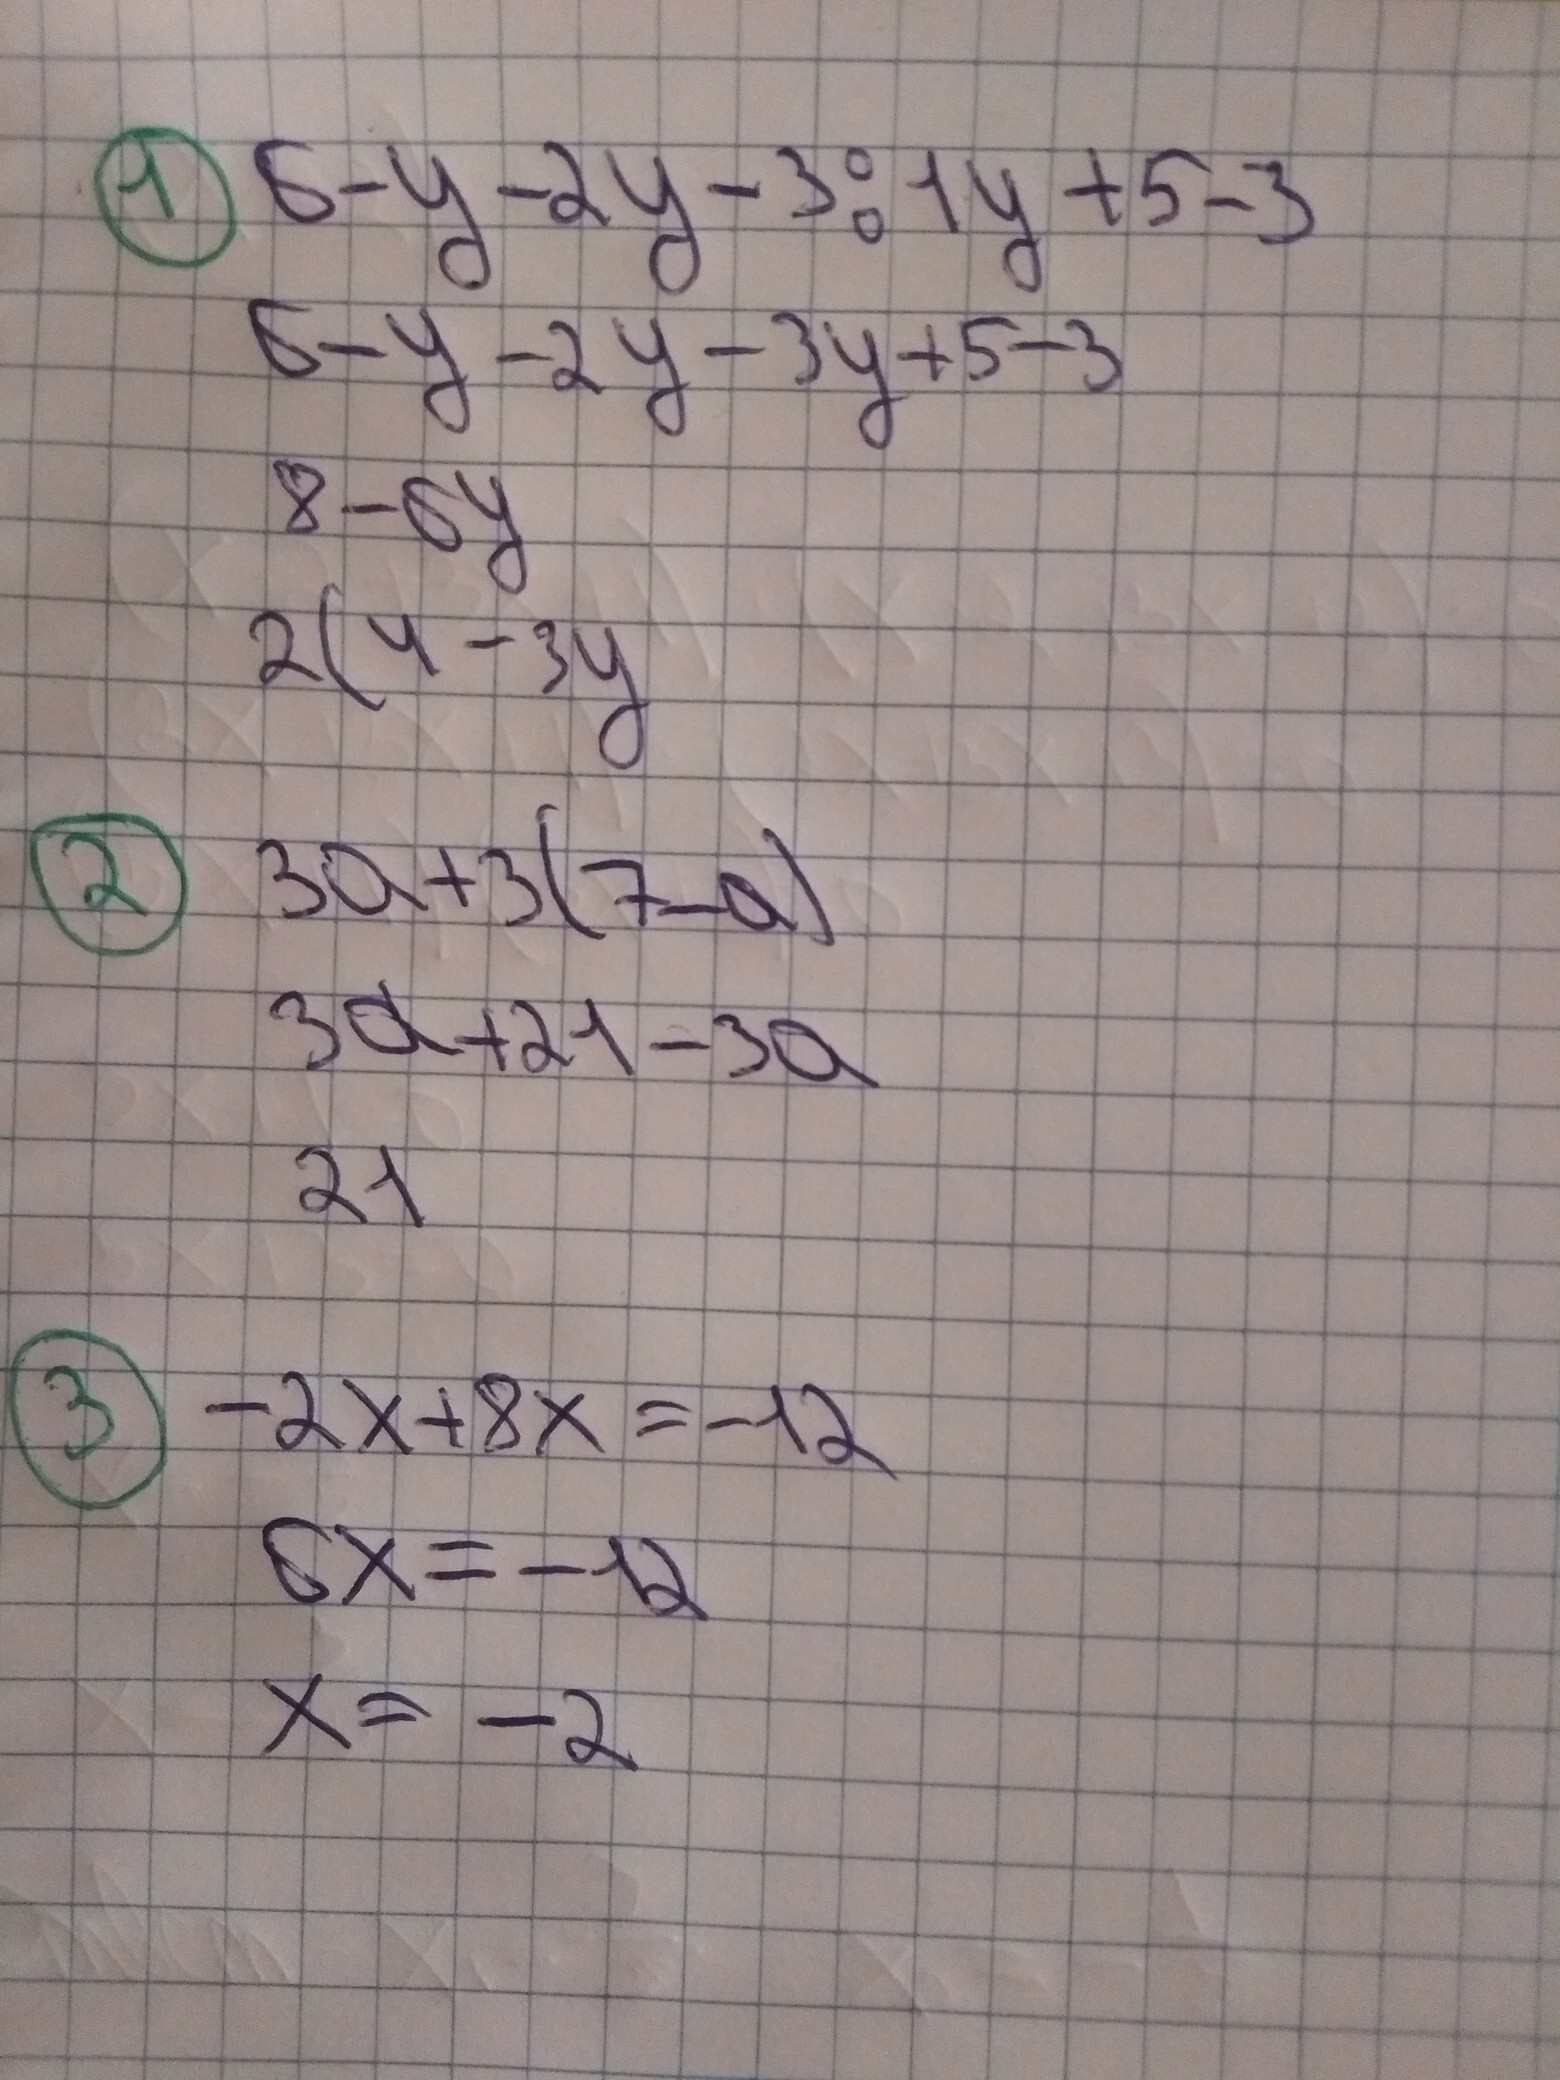 1 6-y-2y-3:1y+5-3
6-y-2y-3y+5-3
8-6y
2(4-3y
2 3a+3(7-a)
3a+21-3a
21
3 -2x+8x=-12
6x=-12
x=-2